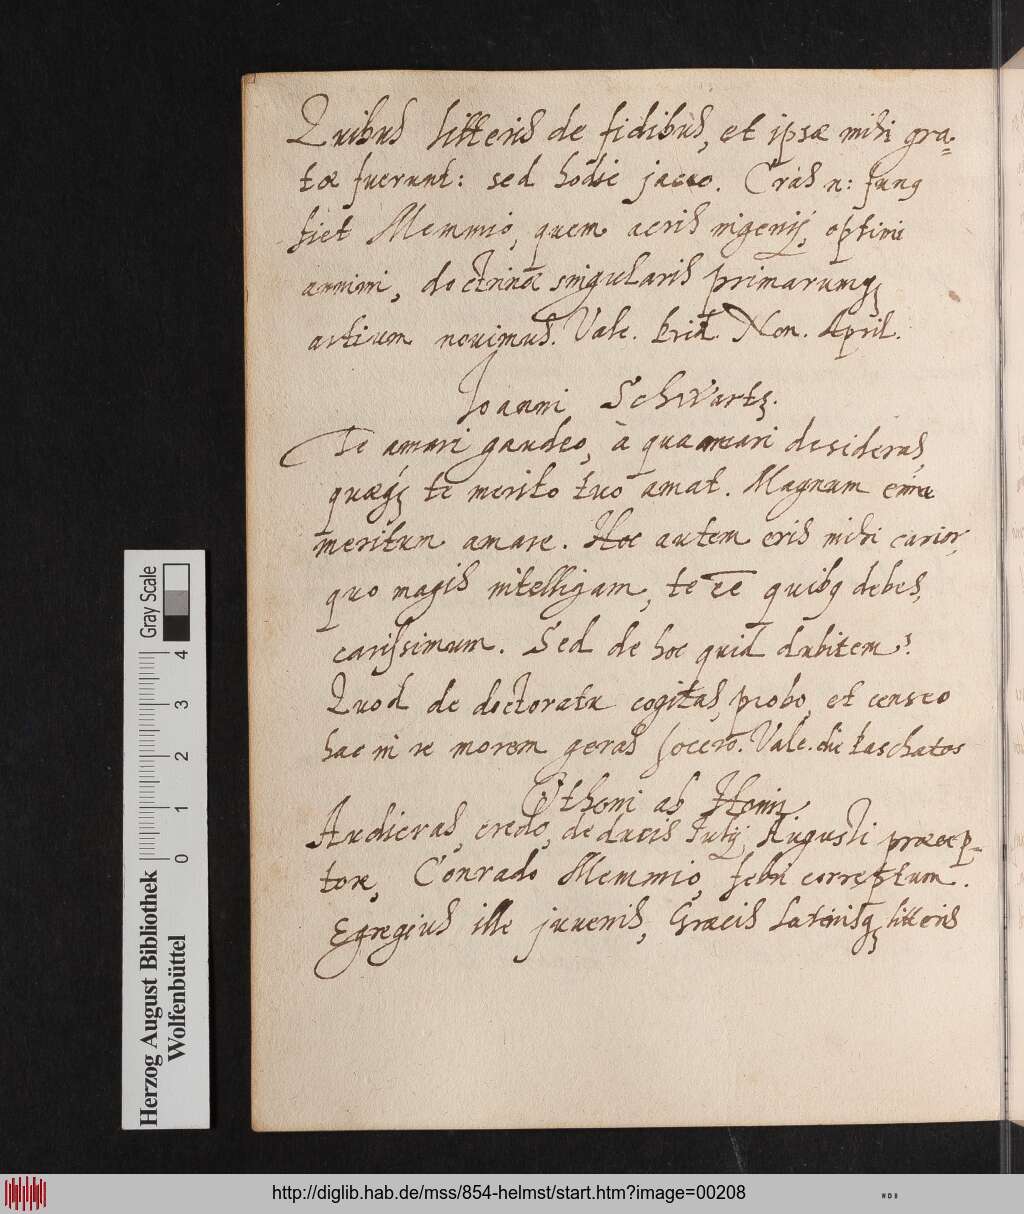 Quibus litteris de fidibus, et ipsæ mihi gra-
tæ fuerunt: sed hodie jaceo. Cras n: fung
fiet Memmio, quem acris ingenij, optimi
animi, doctrinæ singularis primarumq3
artium novimus. Vale. Prid. Non. April.
Joanni Schwartz.
Te amari gaudeo, à qua amari desideras,
quæq3 te merito tuo amat. Magnum enim
meritum amare. Hoc autem eris mihi carior,
quo magis intelligam, te ēē quibq debes,
carissimum. Sed de hoc quid dubitem?
Quod de doctoratu cogitas, probo, et censeo
hac in re morem geras socero. Vale. die Paschatos
Othoni ab Hoim
Audieras, credo, de ducis Julij Augusti præcep-
tore, Conrado Memmio, febri correptum.
Egregius ille juvenis, Græcis Latinisq3 litteris
Gray Scale
0 1 2 3 4
Herzog August Bibliothek
Wolfenbüttel
http://diglib.hab.de/mss/854-helmst/start.htm?image=00208
WDB